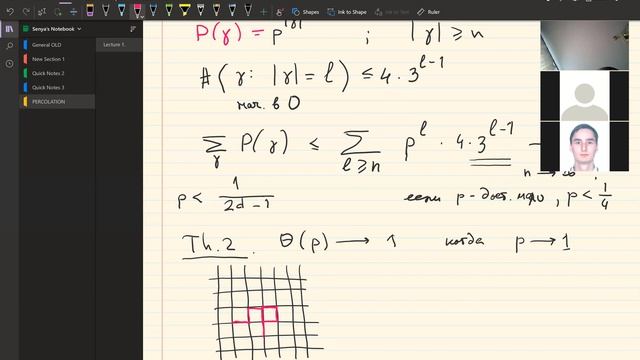 Shapes
Ink to Shape
Ink to Math
Senya's Notebook
General OLD
New Section 1
Quick Notes 2
Quick Notes 3
PERCOLATION
Lecture 1.
P(γ) = p^|γ| ; |γ| ≥ n
#(γ: |γ| = l) ≤ 4·3^{l-1}
нач. в 0
∑_γ P(γ) ≤ ∑_{l≥n} p^l · 4·3^{l-1} →
n → ∞
p < 1/(2d-1)
если p - дост. мало, p < 1/4
Th. 2. Θ(p) → 1 когда p → 1